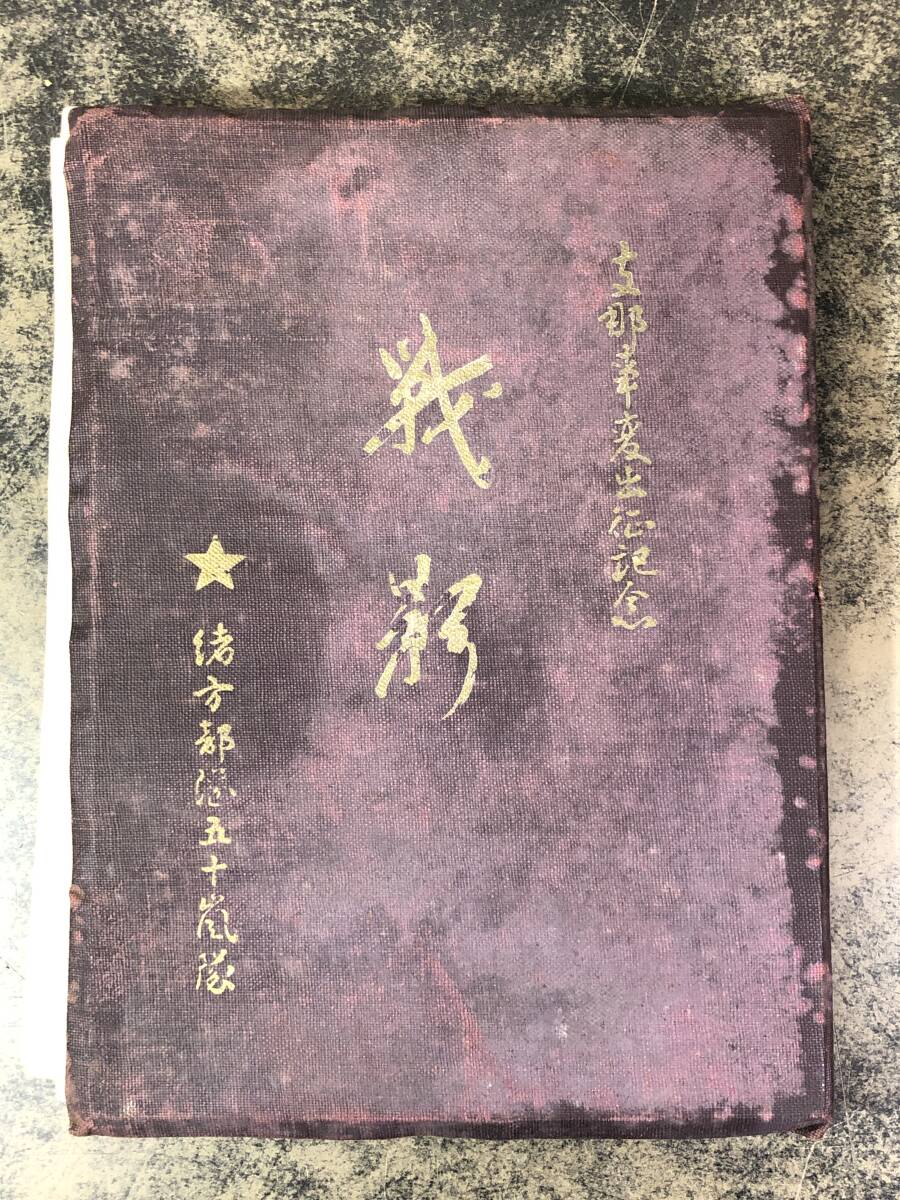 支那事変出征記念
戦
★ 緒方部隊五十嵐隊